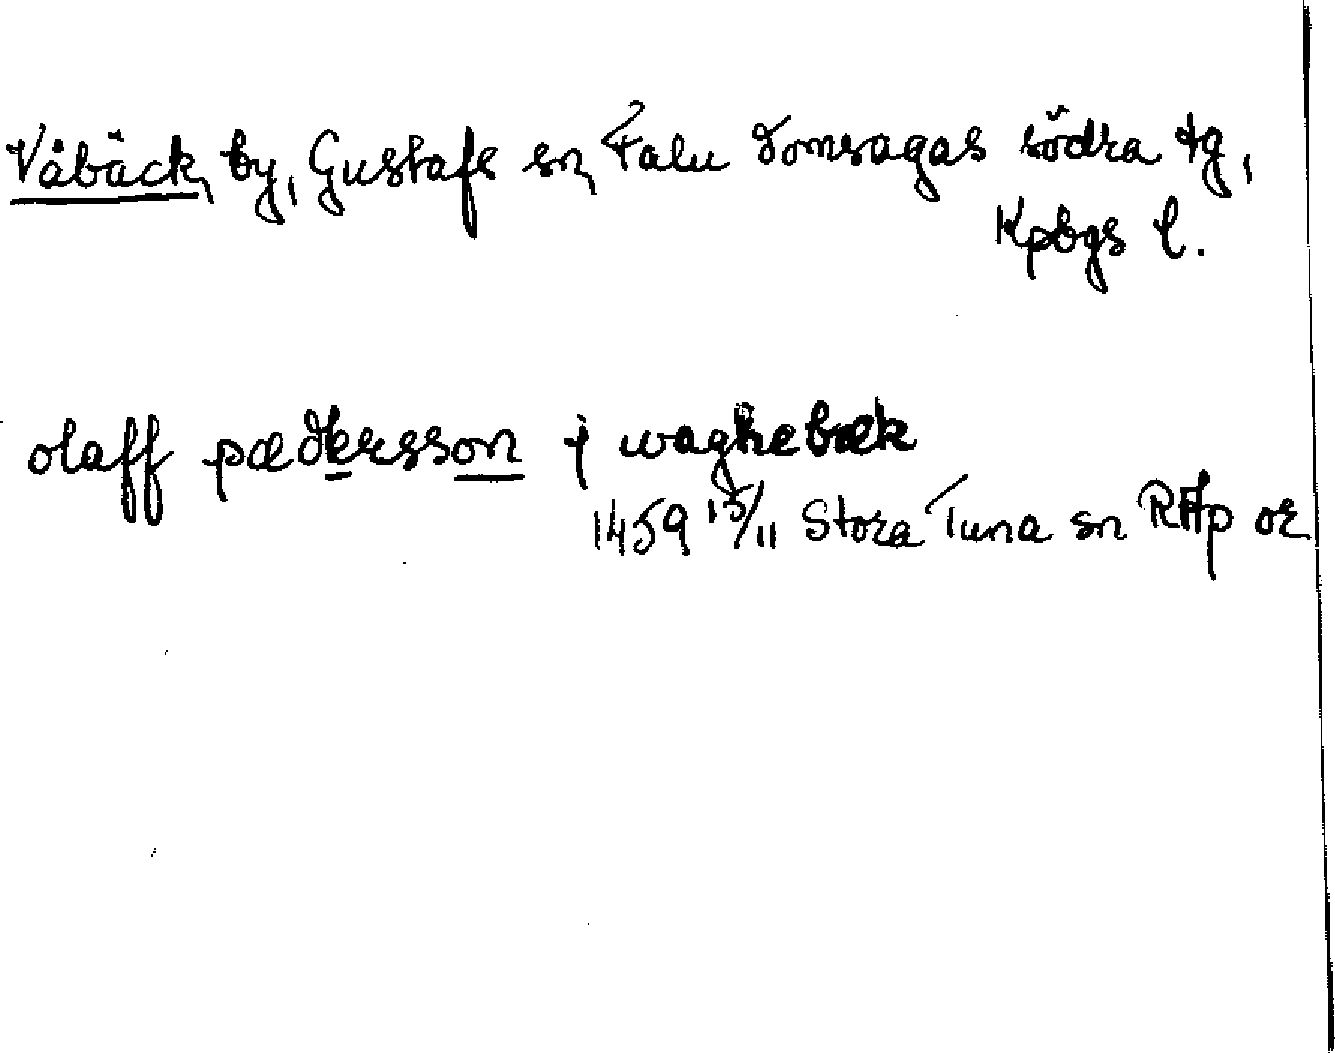 Våbäck, by, Gustafs sn, Falu domsagas södra tg,
Kpbgs l.
olaff pædersson j waghebæk
1459 15/11 Stora Tuna sn RAp or